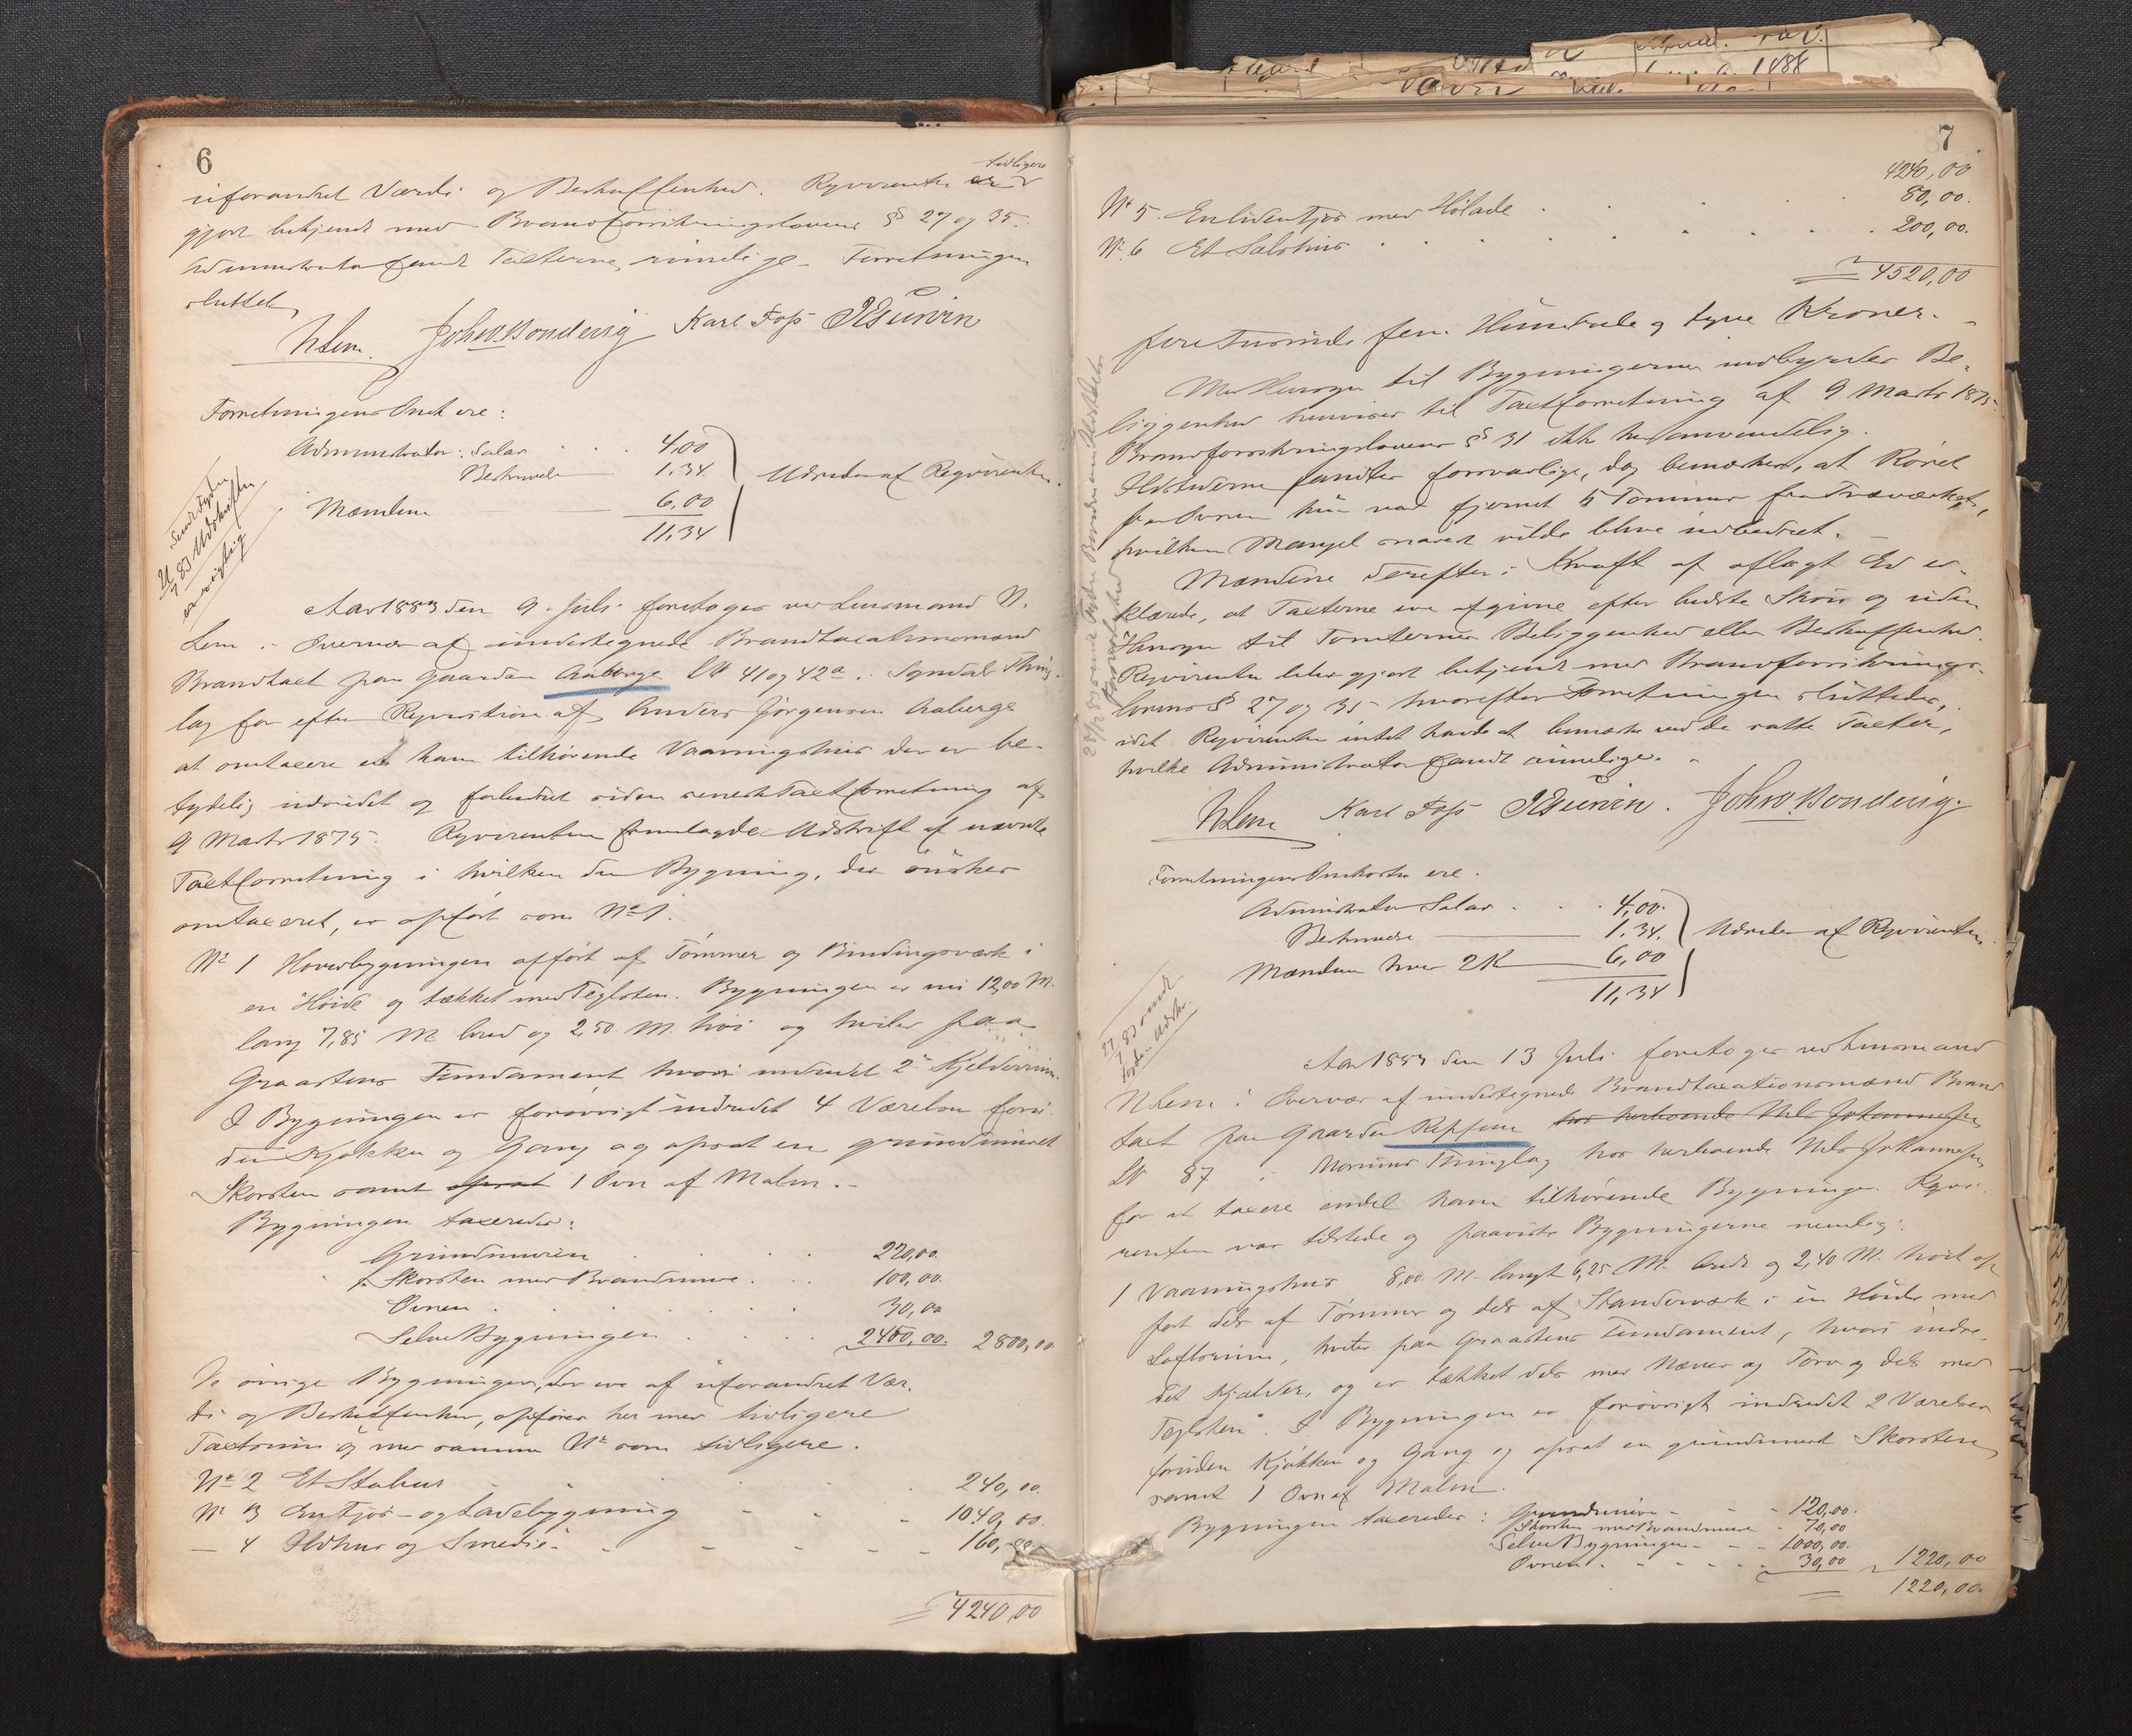 6
tidligere
uforandret Værdi og Beskaffenhed. Rqvirenten er
gjort bekjendt med Brandforsikringslovens §§ 27 og 35.
Administrator fandt Taxterne rimelige. Forretningen
sluttet
NLem. John O. Bondevig Karl Foss
Forretningens Omk ere:
Administrator: Salar . . 4,00
Beskrivelse 1.34.
Udredes af Reqvirenten.
Mændene 6,00
11,34
Aar 1883 den 9. Juli foretoges ved Lensmand N.
Lem i Overvær af undertegnede Brandtaxationsmænd
Brandtaxt paa Gaarden Aaberge LN 41 og 42a i Sogndal Thing-
lag for efter Reqvisition af Anders Jørgensen Aaberge
at omtaxere et ham tilhørende Vaaningshus der er be-
tydelig udvidet og forbedret siden seneste Taxtforretning af
9 Marts 1875. Reqvirenten fremlagde Udskrift af nævnte
Taxtforretning i hvilken den Bygning, der ønskes
omtaxeret, er opført som No 1.
No 1 Hovedbygningen opført af Tømmer og Bindingsværk i
en Høide og tækket med Teglsten. Bygningen er nu 12,00 M.
lang 7,85 M bred og 2,50 M. høi og hviler paa
Graastens Fundament hvori indredet 2 Kjelderrum.
I Bygningen er forøvrigt indredet 4 Værelser foru-
den Kjøkken og Gang og opsat en grundmuret
Skorsten samt opsat 1 Ovn af Malm.-
Bygningen taxeredes:
Grundmuren . . . . 220,00.
Skorsten med Brandmure . . . 100,00.
Ovnen . . . . . . 30,00
Selve Bygningen . . . . 2450,00. 2800,00
De øvrige Bygninger, der ere af uforandret Vær-
di og Beskaffenhed, opføres her med tidligere
Taxtsum og med samme No som tidligere.
No 2 Et Stabur . . . 240,00.
No 3 En Fjøs- og Ladebygning - - - 1040,00.
— 4 Ildhus og Smedie - - - - 160,00
4240,00
7
4240,00
No 5. En liden Fjøs med Hølade . . . . 80,00.
No. 6 Et Saltshus . . . . . . 200,00.
4520,00
fire Tusinde fem Hundrede og tyve Kroner. -
Med Hensyn til Bygningernes indbyrdes Be-
liggenhed henvises til Taxtforretning af 9 Marts 1875.
Brandforsikringslovens §§ 31 ikke her anvendelig.
Ildstederne fandtes forsvarlige, dog bemærkes, at Røret
fra Ovnen kun var fjernet 5 Tommer fra Træværket,
hvilken Mangel snarest vilde blive udbedret. -
Mændene derefter i Kraft af aflagt Ed er-
klærede, at Taxterne ere afgivne efter bedste Skjøn og uden
Hensyn til Tomternes Beliggenhed eller Beskaffenhed.
Reqvirenten blev gjort bekjendt med Brandforsikrings-
lovens § 27 og 35 hvorefter Forretningen sluttedes,
idet Reqvirenten intet havde at bemærke ved de satte Taxter,
hvilke Administrator fandt rimelige. -
NLem Karl Foss John O. Bondevig.
Forretningens Omkostn ere.
Administrator Salar . . . 4,00.
Beskrivelse 1.34.
Udredes af Reqvirenten.
Mændene hver 2K 6,00
11,34
Aar 1883 den 13 Juli foretoges ved Lensmand
N Lem i Overvær af undertegnede Brandtaxationsmænd Brand
taxt paa Gaarden hos herboende Nils Johannesen
LN 87 i Thinglag hos herboende Nils Johannesen
for at taxere endel ham tilhørende Bygninger. Reqvi-
renten var tilstede og paaviste Bygningerne nemlig:
1 Vaaningshus 8,00 M. langt 6,25 M. bredt og 2,40 M. høit op-
ført dels af Tømmer og dels af Standerværk i en Høide med
Loftsrum, hviler paa Graastens Fundament, hvori indre-
det Kjælder, og er tækket dels med Næver og Torv og dels med
Teglsten. I Bygningen er forøvrigt indredet 2 Værelser
foruden Kjøkken og Gang og opsat en grundmuret Skorsten
samt 1 Ovn af Malm.
Bygningen taxeredes: Grundmuren - - - 120,00.
Skorsten med Brandmure - 70,00
Selve Bygningen - - - 1000,00.
Ovnen . - - - 30,00 1220,00
1220,00.